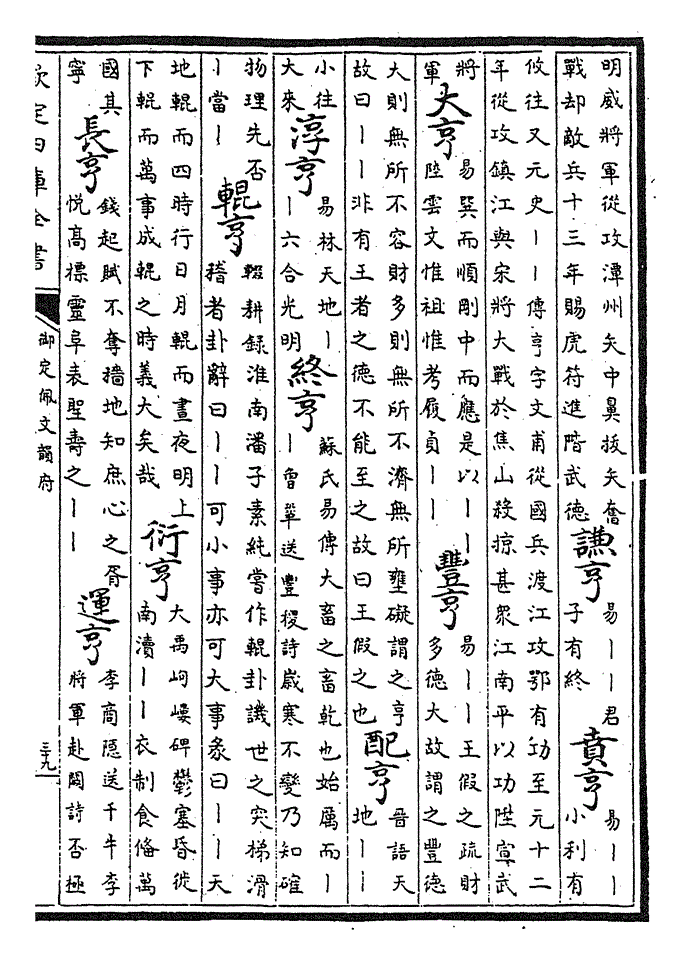 明威將軍從攻潭州矢中鼻拔矢奮
戰却敵兵十三年賜虎符進階武德
謙亨
易丨丨君
子有終
賁亨
易丨丨
小利有
攸往又元史丨丨傳亨字文甫從國兵渡江攻鄂有功至元十二
年從攻鎮江與宋將大戰於焦山殺掠甚衆江南平以功陞宣武
將
軍
大亨
易巽而順剛中而應是以丨丨
陸雲文惟祖惟考履貞丨丨
豐亨
易丨丨王假之疏財
多德大故謂之豐德
大則無所不容財多則無所不濟無所壅礙謂之亨
故曰丨丨非有王者之德不能至之故曰王假之也
配亨
晉語天
地丨丨
小往
大來
淳亨
易林天地丨
丨六合光明
終亨
蘇氏易傳大畜之畜乾也始厲而丨
丨曾鞏送豐稷詩歲寒不變乃知確
物理先否
丨當丨
輥亨
輟耕錄淮南潘子素純嘗作輥卦譏世之突梯滑
稽者卦辭曰丨丨可小事亦可大事彖曰丨丨天
地輥而四時行日月輥而晝夜明上
下輥而萬事成輥之時義大矣哉
衍亨
大禹岣嶁碑鬱塞昏徙
南瀆丨丨衣制食備萬
國其
寧
長亨
錢起賦不奪墻地知庶心之胥
悅高標靈阜表聖壽之丨丨
運亨
李商隱送千牛李
將軍赴闕詩否極
欽定四庫全書
御定佩文韻府
三九